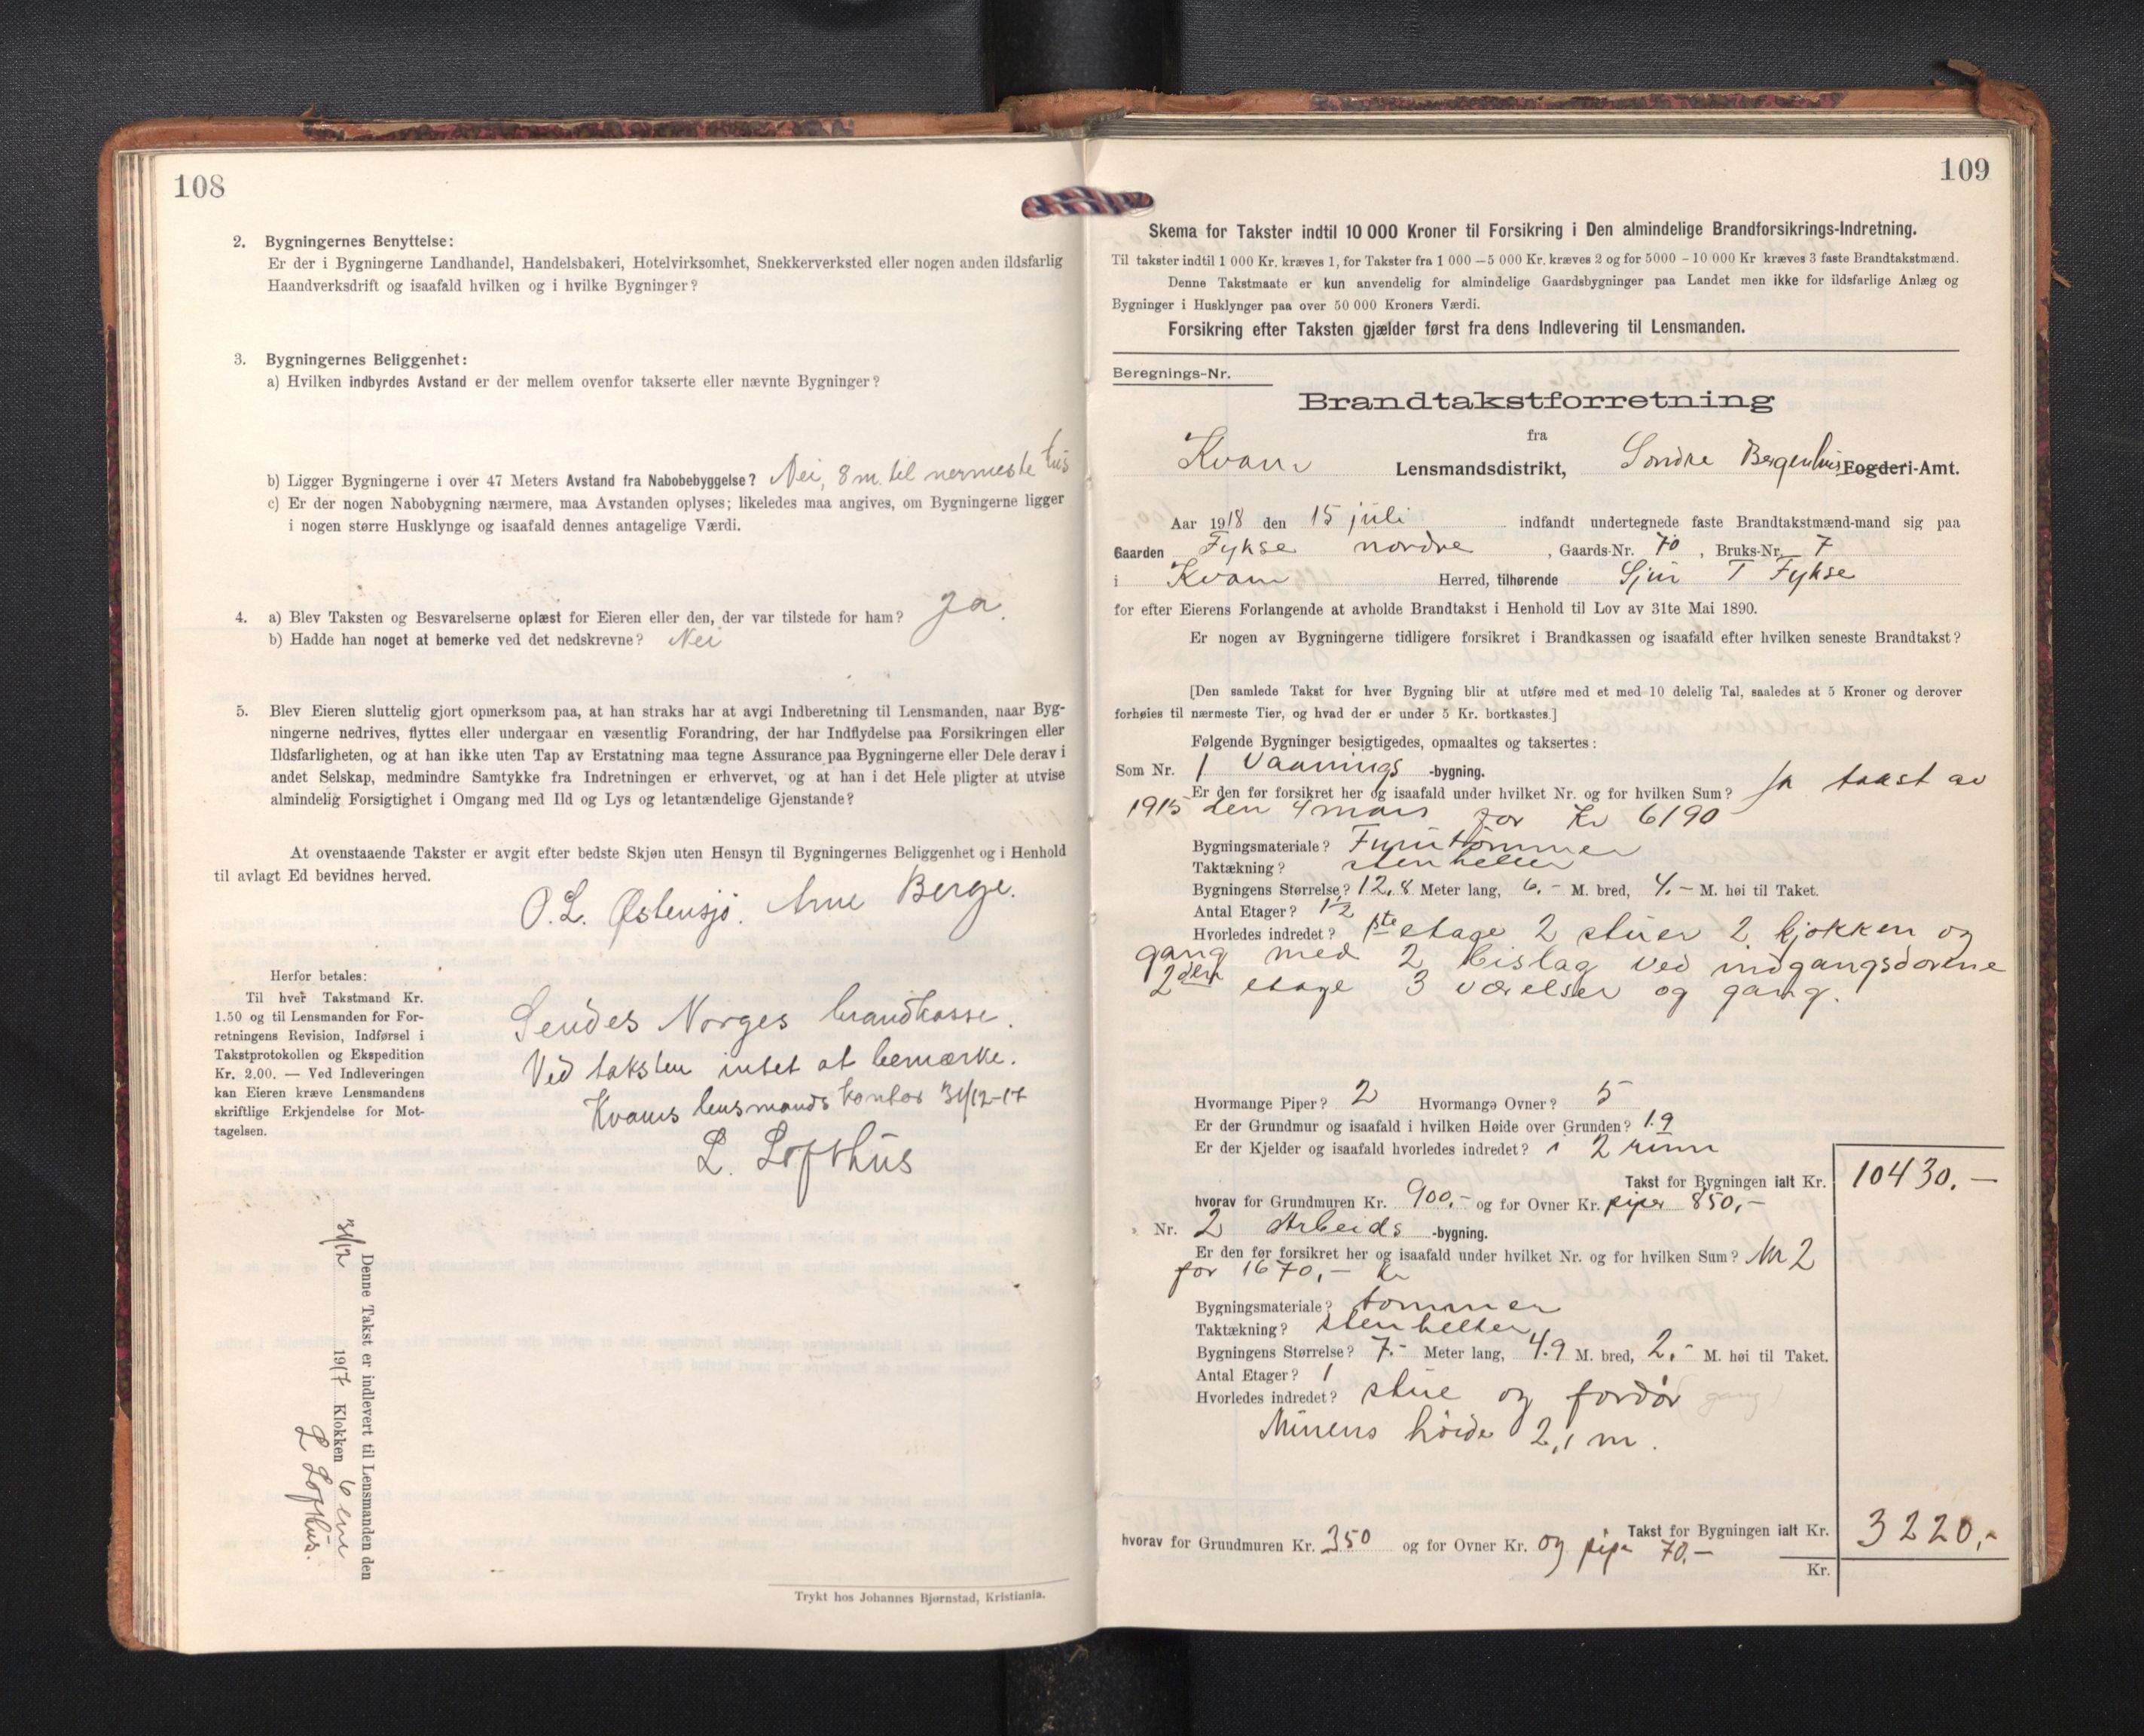 108
2. Bygningernes Benyttelse:
Er der i Bygningerne Landhandel, Handelsbakeri, Hotelvirksomhet, Snekkerverksted eller nogen anden ildsfarlig
Haandverksdrift og isaafald hvilken og i hvilke Bygninger?
3. Bygningernes Beliggenhet:
a) Hvilken indbyrdes Avstand er der mellem ovenfor takserte eller nævnte Bygninger?
b) Ligger Bygningerne i over 47 Meters Avstand fra Nabobebyggelse? Nei, 8 m. til nermeste hus
c) Er der nogen Nabobygning nærmere, maa Avstanden oplyses; likeledes maa angives, om Bygningerne ligger
i nogen større Husklynge og isaafald dennes antagelige Værdi.
4. a) Blev Taksten og Besvarelserne oplæst for Eieren eller den, der var tilstede for ham? Ja.
b) Hadde han noget at bemerke ved det nedskrevne? Nei
5. Blev Eieren sluttelig gjort opmerksom paa, at han straks har at avgi Indberetning til Lensmanden, naar Byg-
ningerne nedrives, flyttes eller undergaar en væsentlig Forandring, der har Indflydelse paa Forsikringen eller
Ildsfarligheten, og at han ikke uten Tap av Erstatning maa tegne Assurance paa Bygningerne eller Dele derav i
andet Selskap, medmindre Samtykke fra Indretningen er erhvervet, og at han i det Hele pligter at utvise
almindelig Forsigtighet i Omgang med Ild og Lys og letantændelige Gjenstande?
At ovenstaaende Takster er avgit efter bedste Skjøn uten Hensyn til Bygningernes Beliggenhet og i Henhold
til avlagt Ed bevidnes herved.
O. L. Østensjø. Arne Berge.
Herfor betales:
Til hver Takstmand Kr.
1.50 og til Lensmanden for For-
retningens Revision, Indførsel i
Takstprotokollen og Ekspedition
Kr. 2.00. — Ved Indleveringen
kan Eieren kræve Lensmandens
skriftlige Erkjendelse for Mot-
tagelsen.
Sendes Norges brandkasse.
Ved taksten intet at bemærke.
Kvams lensmandskontor 31/12-17
L. Lofthus
Denne Takst er indlevert til Lensmanden den
31/12 1917 Klokken 6 em
L Lofthus.
Trykt hos Johannes Bjørnstad, Kristiania.
109
Skema for Takster indtil 10 000 Kroner til Forsikring i Den almindelige Brandforsikrings-Indretning.
Til takster indtil 1 000 Kr. kræves 1, for Takster fra 1 000 — 5 000 Kr. kræves 2 og for 5000 – 10 000 Kr kræves 3 faste Brandtakstmænd.
Denne Takstmaate er kun anvendelig for almindelige Gaardsbygninger paa Landet men ikke for ildsfarlige Anlæg og
Bygninger i Husklynger paa over 50 000 Kroners Værdi.
Forsikring efter Taksten gjælder først fra dens Indlevering til Lensmanden.
Beregnings-Nr.
Brandtakstforretning
fra
Kvam Lensmandsdistrikt, Søndre Bergenhus Fogderi-Amt.
Aar 1918 den 15 juli indfandt undertegnede faste Brandtakstmænd-mand sig paa
Gaarden Fykse nordre, Gaards-Nr. 70, Bruks-Nr. 7
i Kvam Herred, tilhørende Sjur T Fykse
for efter Eierens Forlangende at avholde Brandtakst i Henhold til Lov av 31te Mai 1890.
Er nogen av Bygningerne tidligere forsikret i Brandkassen og isaafald efter hvilken seneste Brandtakst?
[Den samlede Takst for hver Bygning blir at utføre med et med 10 delelig Tal, saaledes at 5 Kroner og derover
forhøies til nærmeste Tier, og hvad der er under 5 Kr. bortkastes.]
Følgende Bygninger besigtigedes, opmaaltes og taksertes:
Som Nr. 1 Vaanings -bygning.
Er den før forsikret her og isaafald under hvilket Nr. og for hvilken Sum? Ja takst av
1915 den 4 mars for Kr 6190
Bygningsmateriale? Furutømmer
Taktækning? stenheller
Bygningens Størrelse? 12,8 Meter lang, 6.- M. bred, 4.- M. høi til Taket.
Antal Etager? 1½
Hvorledes indredet? 1ste etage 2 stuer 2 kjøkken og
gang med 2 bislag ved indgangsdørene
2den etage 3 værelser og gang.
Hvormange Piper? 2 Hvormange Ovner? 5
Er der Grundmur og isaafald i hvilken Høide over Grunden? 1.9
Er der Kjelder og isaafald hvorledes indredet? i 2 rum
Takst for Bygningen ialt Kr. 10430.—
hvorav for Grundmuren Kr. 900,- og for Ovner Kr. piper 850,-
Nr. 2 Arbeids -bygning.
Er den før forsikret her og isaafald under hvilket Nr. og for hvilken Sum? Nr 2
for 1670,- Kr
Bygningsmateriale? tømmer
Taktækning? stenheller
Bygningens Størrelse? 7.- Meter lang, 4.9 M. bred, 2.- M. høi til Taket.
Antal Etager? 1
Hvorledes indredet? stue og fordør (gang)
Murens høide 2,1 m.
Takst for Bygningen ialt Kr. 3220,-
hvorav for Grundmuren Kr. 350 og for Ovner Kr. og pipe 70.-
Kr.